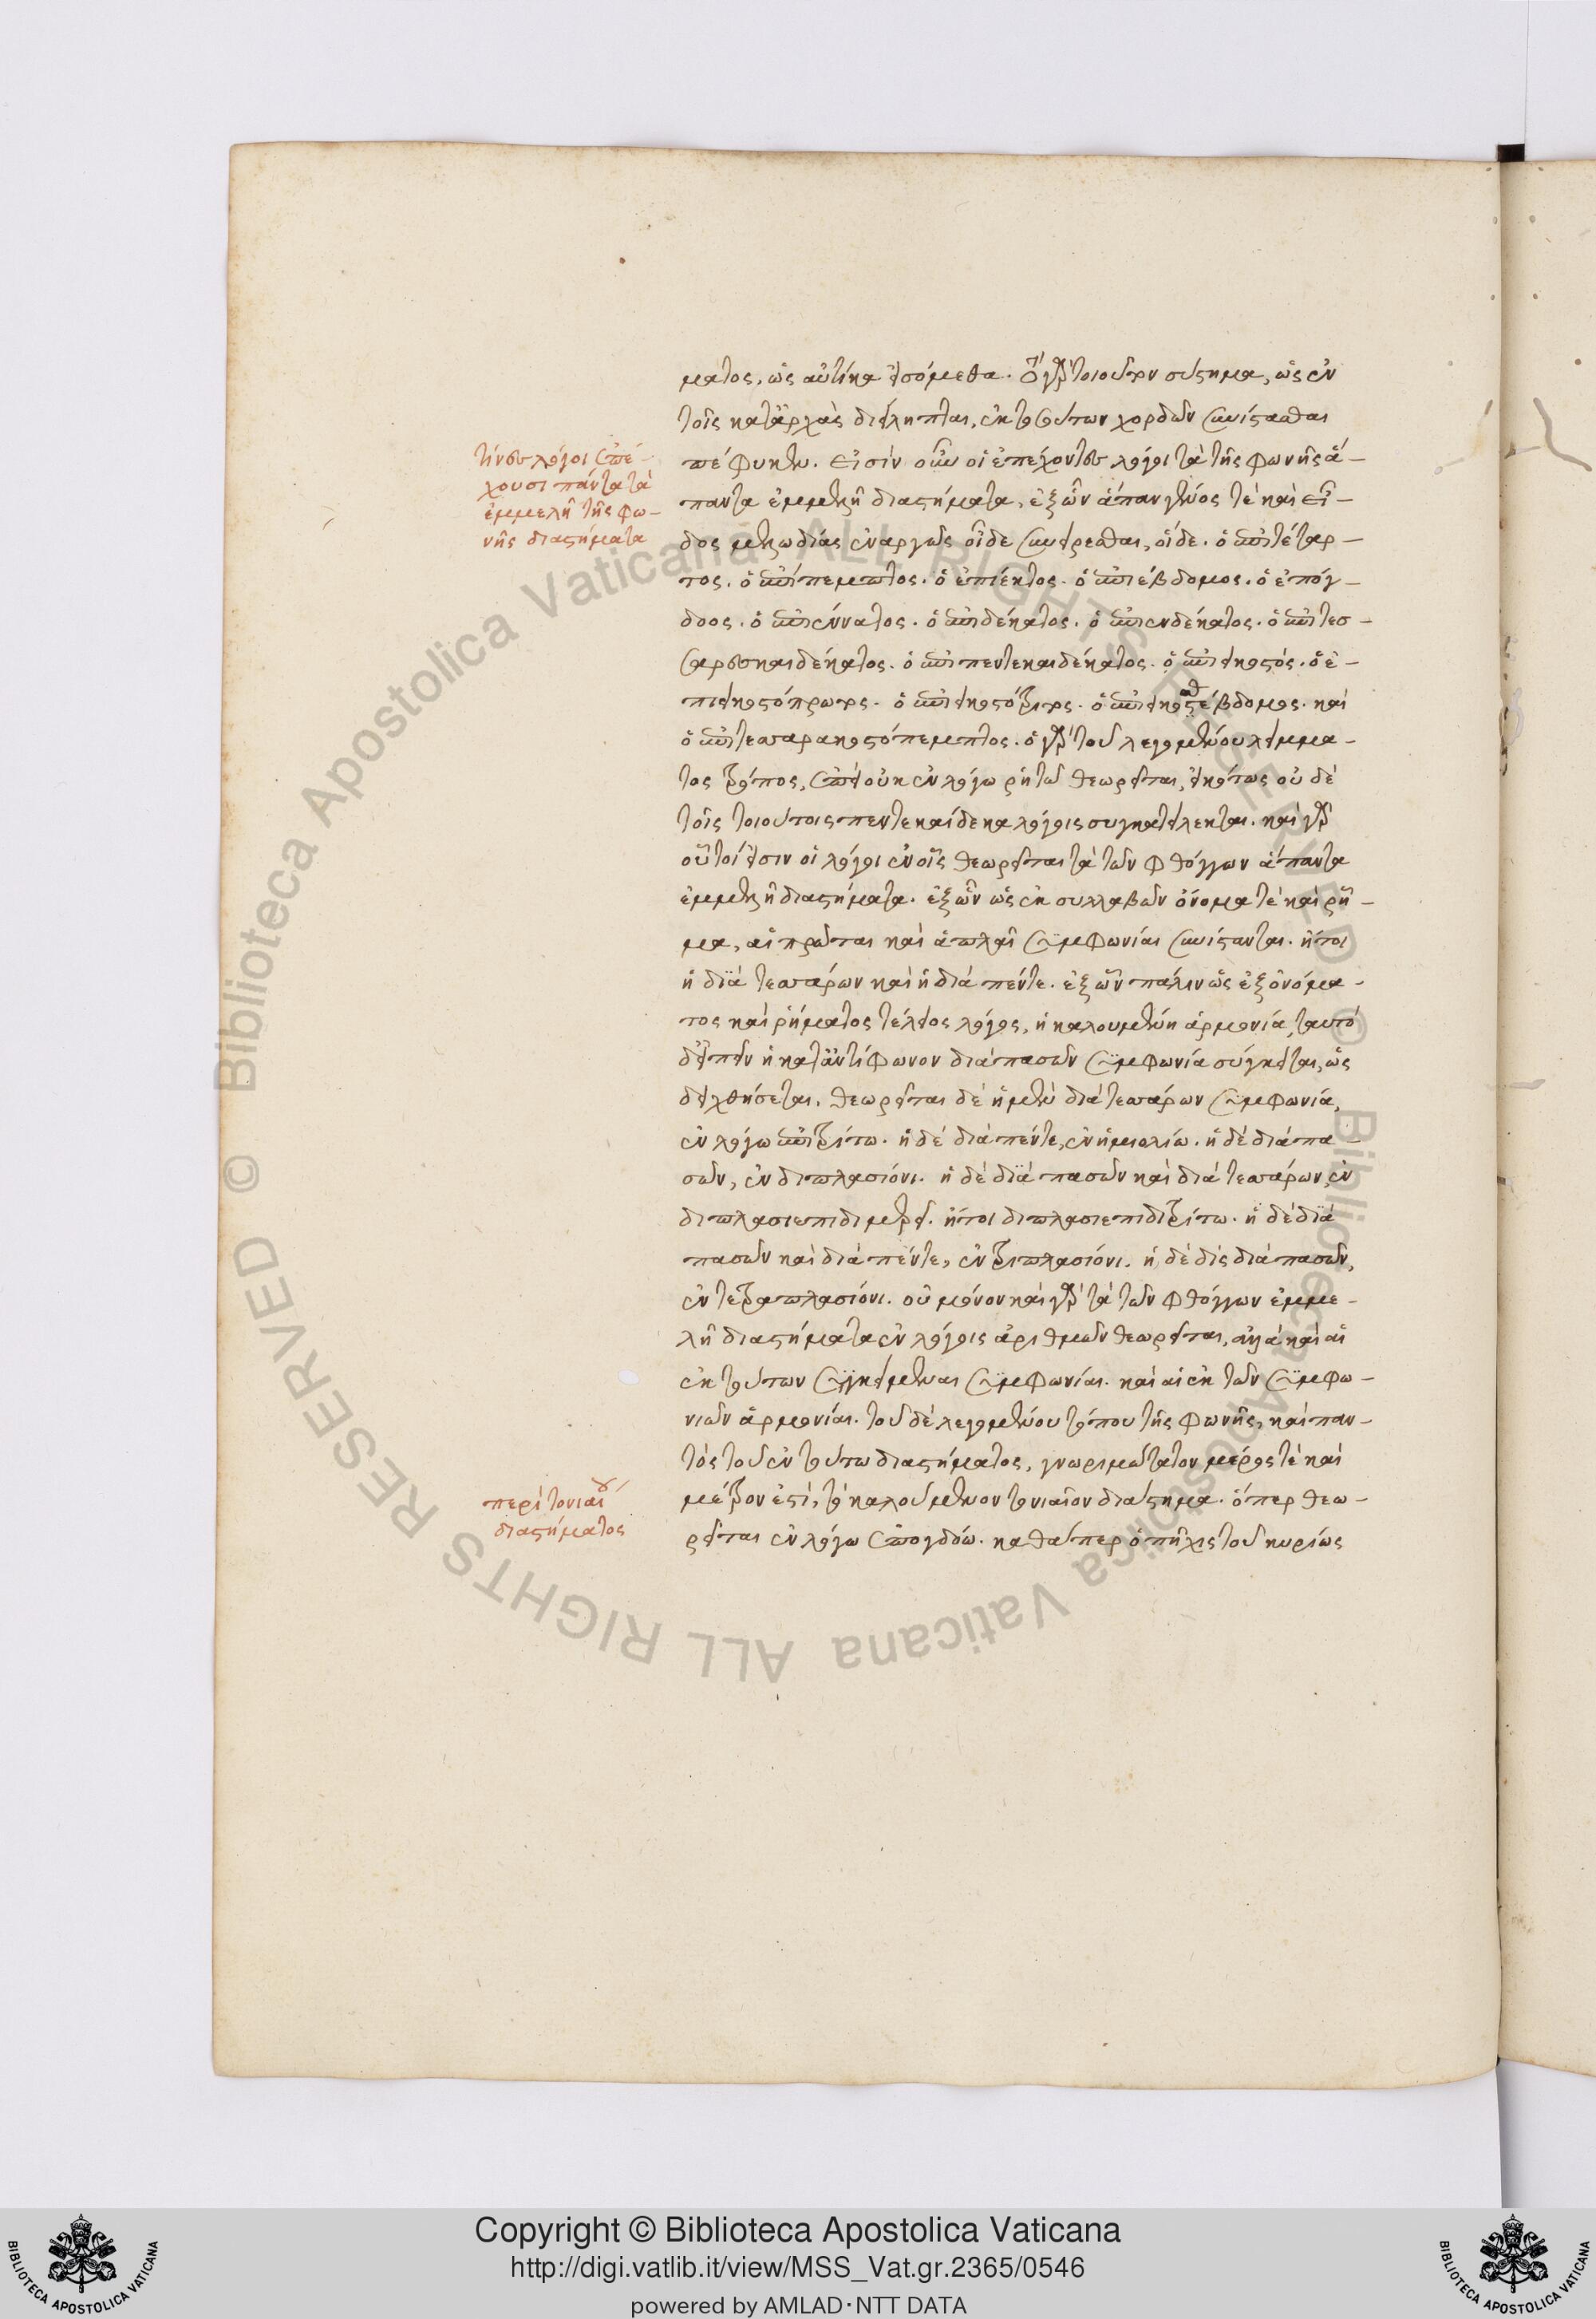 ματος, ὡς αὐτίκα εἰσόμεθα. Ὅτι γὰρ τοιοῦτον σύστημα, ὡς ἐν
τοῖς κατ' ἀρχὰς διείληπται, ἐκ τούτων χορδῶν συνίστασθαι
τίνες λόγοι ἐπέ-
χουσι πάντα τὰ
ἐμμελῆ τῆς φω-
νῆς διαστήματα
πέφυκεν. εἰσὶν οὖν οἱ ἐπέχοντες λόγοι τὰ τῆς φωνῆς ἅ-
παντα ἐμμελῆ διαστήματα, ἐξ ὧν ἅπαν γένος τὲ καὶ εἶ-
δος μελωδίας ἐναργῶς οἶδε συνείρεσθαι, οἵδε. ὁ ἐπιτέταρ-
τος. ὁ ἐπίπεμπτος. ὁ ἐπίεκτος. ὁ ἐπιέβδομος. ὁ ἐπόγ-
δοος. ὁ ἐπιέννατος. ὁ ἐπιδέκατος. ὁ ἐπιενδέκατος. ὁ ἐπιτεσ-
σαρεσκαιδέκατος. ὁ ἐπιπεντεκαιδέκατος. ὁ ἐπιεικοστός. ὁ ἐ-
πιεικοστόπρωτος. ὁ ἐπιεικοστότριτος. ὁ ἐπιεικοστέβδομος. καὶ
ὁ ἐπιτεσσαρακοστόπεμπτος. ὁ γὰρ τοῦ λεγομένου λείμμα-
τος τρόπος, ἐπεὶ οὐκ ἐν λόγω ῥητῶ θεωρεῖται, εἰκότως οὐδὲ
τοῖς τοιούτοις πεντεκαίδεκα λόγοις συγκατείλεκται. καὶ γὰρ
οὗτοί εἰσιν οἱ λόγοι ἐν οἷς θεωρεῖται τὰ τῶν φθόγγων ἅπαντα
ἐμμελῆ διαστήματα. ἐξ ὧν ὡς ἐκ συλλαβῶν ὄνομα τὲ καὶ ῥῆ-
μα, αἱ πρῶται καὶ ἁπλαῖ συμφωνίαι συνίστανται. ἤτοι
ἡ διὰ τεσσάρων καὶ ἡ διὰ πέντε. ἐξ ὧν πάλιν ὡς ἐξ ὀνόμα-
τος καὶ ῥήματος τέλειος λόγος, ἡ καλουμένη ἁρμονία, ταυτὸ
δ' εἰπεῖν ἡ κατ' ἀντίφωνον διαπασῶν συμφωνία σύγκειται, ὡς
δειχθήσεται. θεωρεῖται δὲ ἡ μὲν διὰ τεσσάρων συμφωνία,
ἐν λόγω ἐπιτρίτω. ἡ δὲ διὰ πέντε, ἐν ἡμιολίω. ἡ δὲ διὰ πα-
σῶν, ἐν διπλασίονι. ἡ δὲ διὰ πασῶν καὶ διὰ τεσσάρων, ἐν
διπλασιεπιδιμερεῖ. ἤτοι διπλασιεπιδιτρίτω. ἡ δὲ διὰ
πασῶν καὶ διὰ πέντε, ἐν τριπλασίονι. ἡ δὲ δὶς διὰ πασῶν,
ἐν τετραπλασίονι. οὐ μόνον καὶ γὰρ τὰ τῶν φθόγγων ἐμμε-
λῆ διαστήματα ἐν λόγοις ἀριθμῶν θεωρεῖται, ἀλλὰ καὶ αἱ
ἐκ τούτων συγκείμεναι συμφωνίαι. καὶ αἱ ἐκ τῶν συμφω-
νιῶν ἁρμονίαι. τοῦ δὲ λεγομένου τόπου τῆς φωνῆς, καὶ παν-
τὸς τοῦ ἐν τούτω διαστήματος, γνωριμώτατον μέρος τὲ καὶ
περὶ τονιαίου
διαστήματος
μέτρον ἐστὶ, τὸ καλούμενον τονιαῖον διάστημα. ὅπερ θεω-
ρεῖται ἐν λόγω ἐπογδόω. καθάπερ ὁ πῆχις τοῦ κυρίως
© Biblioteca Apostolica Vaticana ALL RIGHTS RESERVED © Biblioteca Apostolica Vaticana ALL RIGHTS RESERVED
Copyright © Biblioteca Apostolica Vaticana
http://digi.vatlib.it/view/MSS_Vat.gr.2365/0546
powered by AMLAD·NTT DATA
BIBLIOTECA APOSTOLICA VATICANA
BIBLIOTECA APOSTOLICA VATICANA